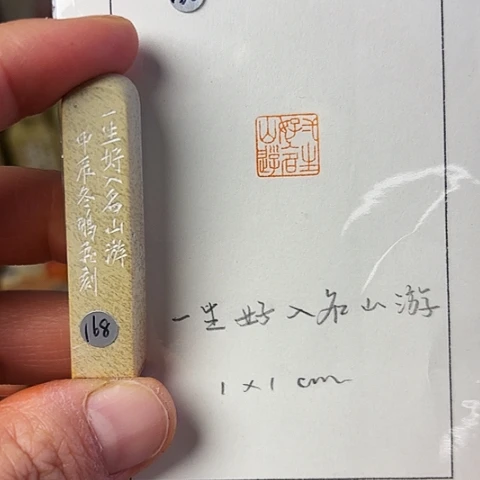 一生好入名山游
甲辰冬刻
168
一生
好入名
山遊
一生好入名山游
1x1cm